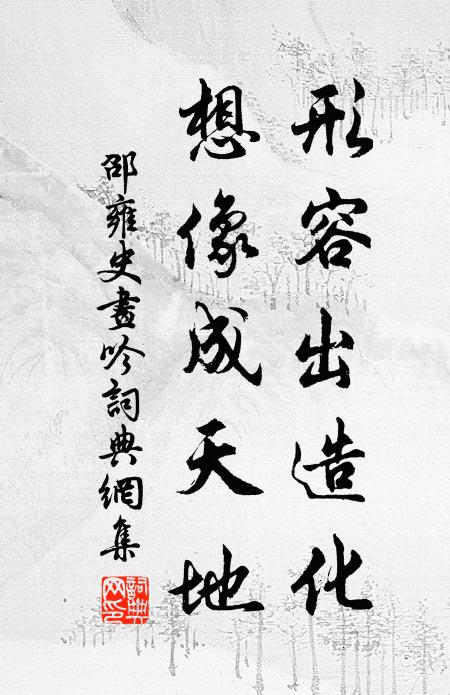 形容出造化
想像成天地
邵雍史畫吟詞典網集
詞典
网印